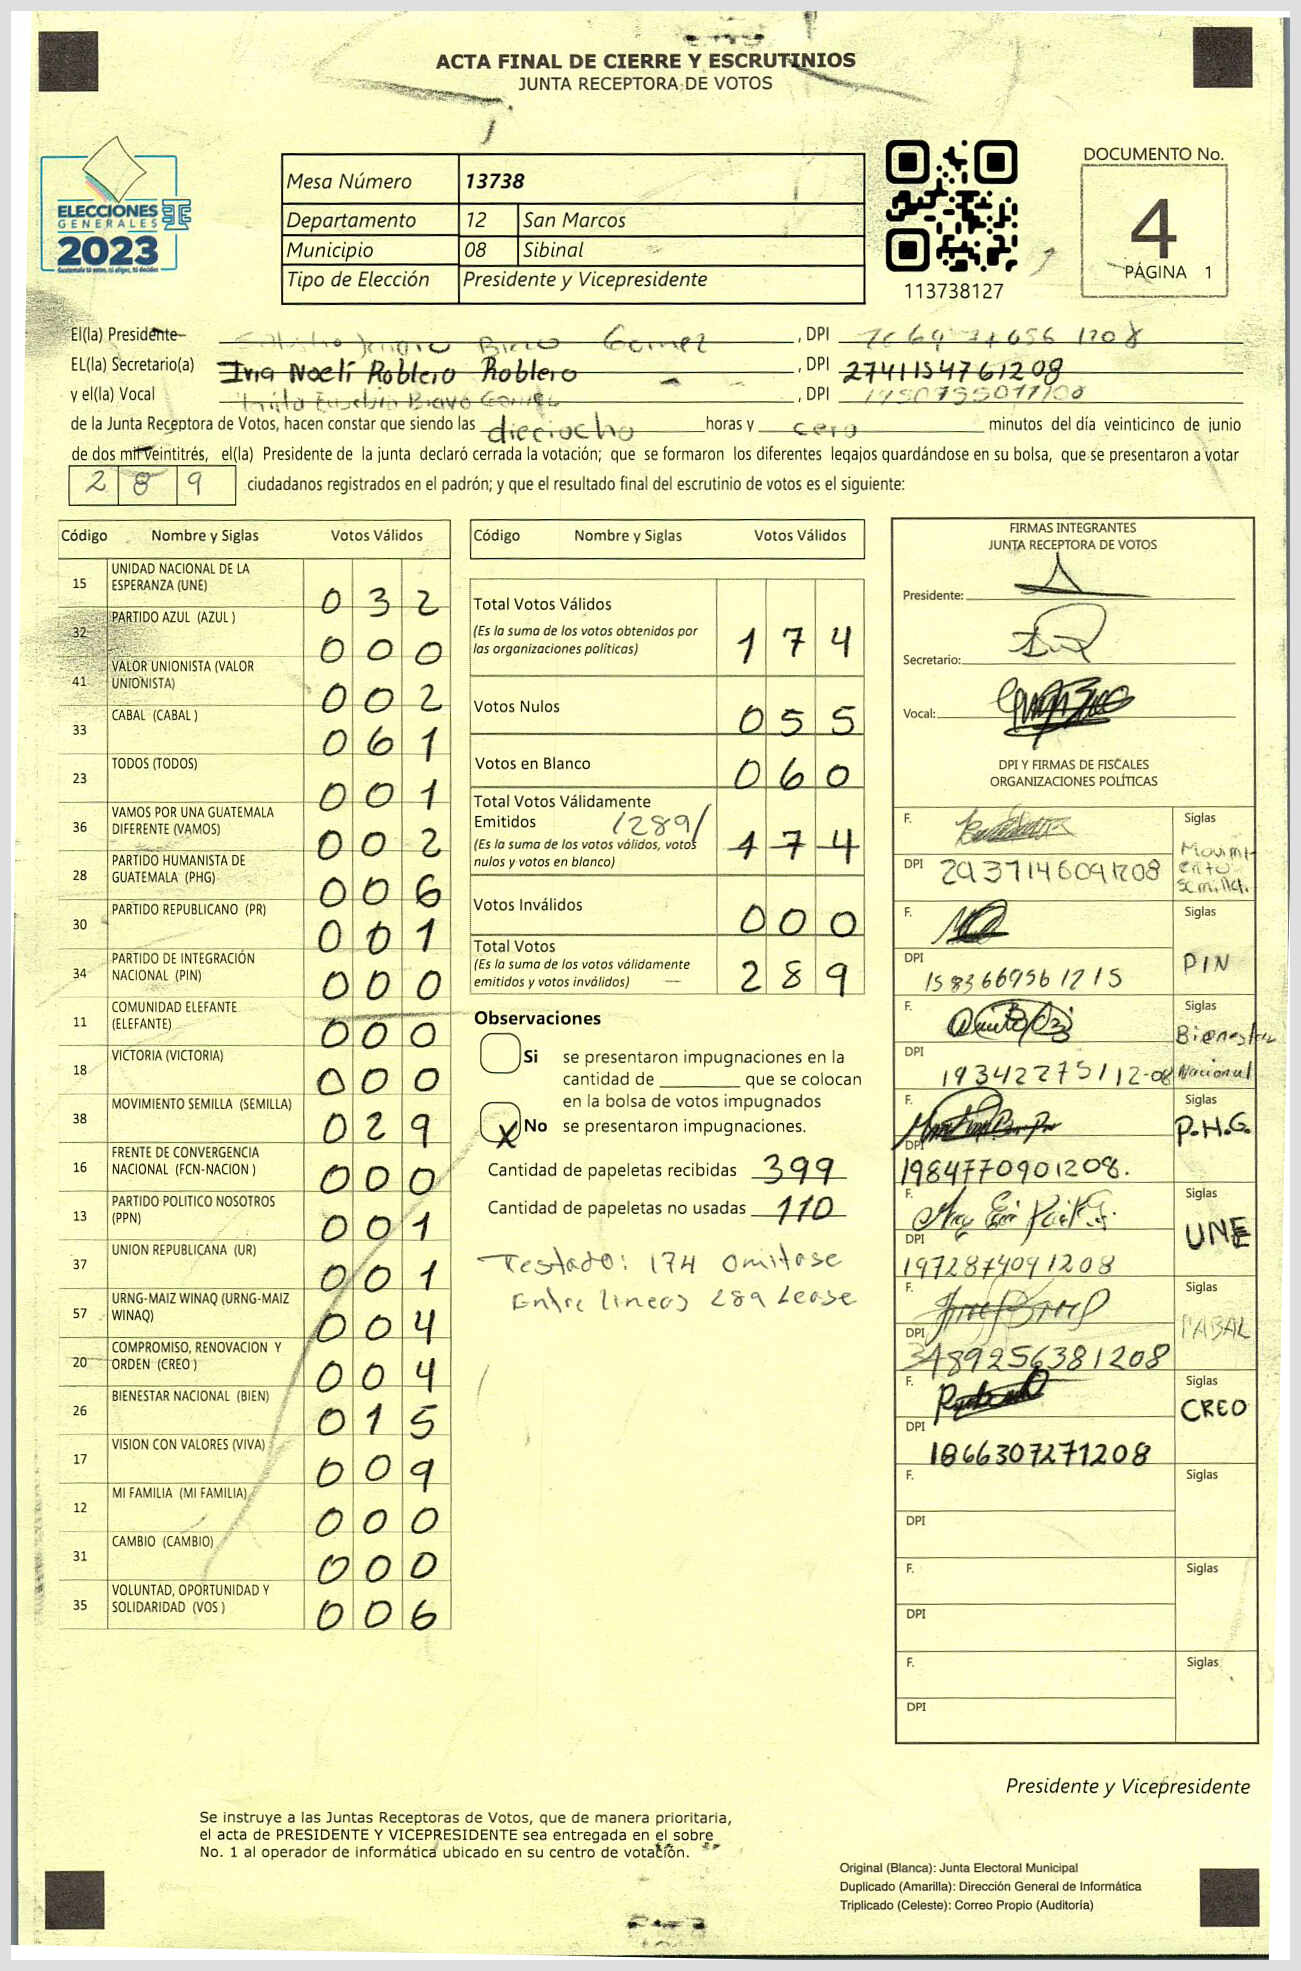 ACTA FINAL DE CIERRE Y ESCRUTINIOS
JUNTA RECEPTORA DE VOTOS
ELECCIONES
GENERALES
2023
Guatemala tú votas, tú eliges, tú decides
Mesa Número 13738
Departamento 12 San Marcos
Municipio 08 Sibinal
Tipo de Elección Presidente y Vicepresidente
113738127
DOCUMENTO No.
4
PÁGINA 1
El(la) Presidente Bravo Gomez, DPI
EL(la) Secretario(a) Iria Noelí Roblero Roblero, DPI 2741154761208
y el(la) Vocal Eusebio Bravo Gomez, DPI
de la Junta Receptora de Votos, hacen constar que siendo las dieciocho horas y cero minutos del día veinticinco de junio
de dos mil veintitrés, el(la) Presidente de la junta declaró cerrada la votación; que se formaron los diferentes legajos guardándose en su bolsa, que se presentaron a votar
289 ciudadanos registrados en el padrón; y que el resultado final del escrutinio de votos es el siguiente:
Código Nombre y Siglas Votos Válidos
15 UNIDAD NACIONAL DE LA ESPERANZA (UNE) 032
32 PARTIDO AZUL (AZUL ) 000
41 VALOR UNIONISTA (VALOR UNIONISTA) 002
33 CABAL (CABAL ) 061
23 TODOS (TODOS) 001
36 VAMOS POR UNA GUATEMALA DIFERENTE (VAMOS) 002
28 PARTIDO HUMANISTA DE GUATEMALA (PHG) 006
30 PARTIDO REPUBLICANO (PR) 001
34 PARTIDO DE INTEGRACIÓN NACIONAL (PIN) 000
11 COMUNIDAD ELEFANTE (ELEFANTE) 000
18 VICTORIA (VICTORIA) 000
38 MOVIMIENTO SEMILLA (SEMILLA) 029
16 FRENTE DE CONVERGENCIA NACIONAL (FCN-NACION ) 000
13 PARTIDO POLITICO NOSOTROS (PPN) 001
37 UNION REPUBLICANA (UR) 001
57 URNG-MAIZ WINAQ (URNG-MAIZ WINAQ) 004
20 COMPROMISO, RENOVACION Y ORDEN (CREO ) 004
26 BIENESTAR NACIONAL (BIEN) 015
17 VISION CON VALORES (VIVA) 009
12 MI FAMILIA (MI FAMILIA) 000
31 CAMBIO (CAMBIO) 000
35 VOLUNTAD, OPORTUNIDAD Y SOLIDARIDAD (VOS ) 006
Código Nombre y Siglas Votos Válidos
Total Votos Válidos 174
(Es la suma de los votos obtenidos por
las organizaciones políticas)
Votos Nulos 055
Votos en Blanco 060
Total Votos Válidamente
Emitidos /289/ 174
(Es la suma de los votos válidos, votos
nulos y votos en blanco)
Votos Inválidos 000
Total Votos 289
(Es la suma de los votos válidamente
emitidos y votos inválidos)
Observaciones
Si se presentaron impugnaciones en la
cantidad de ________ que se colocan
en la bolsa de votos impugnados
X No se presentaron impugnaciones.
Cantidad de papeletas recibidas 399
Cantidad de papeletas no usadas 110
Testado: 174 Omitase
Entre lineas 289 Lease
FIRMAS INTEGRANTES
JUNTA RECEPTORA DE VOTOS
Presidente:
Secretario:
Vocal:
DPI Y FIRMAS DE FISCALES
ORGANIZACIONES POLÍTICAS
F. Siglas Movimiento semilla.
DPI 2937146091208
F. Siglas PIN
DPI 1583669561215
F. Siglas Bienestar Nacional
DPI 19342275112-08
F. Siglas P.H.G.
DPI 1984770901208.
F. Siglas UNE
DPI 1972874091208
F. Siglas CABAL
DPI 3489256381208
F. Siglas CREO
DPI 1866307271208
F. Siglas
DPI
F. Siglas
DPI
F. Siglas
DPI
Presidente y Vicepresidente
Se instruye a las Juntas Receptoras de Votos, que de manera prioritaria,
el acta de PRESIDENTE Y VICEPRESIDENTE sea entregada en el sobre
No. 1 al operador de informática ubicado en su centro de votación.
Original (Blanca): Junta Electoral Municipal
Duplicado (Amarilla): Dirección General de Informática
Triplicado (Celeste): Correo Propio (Auditoría)